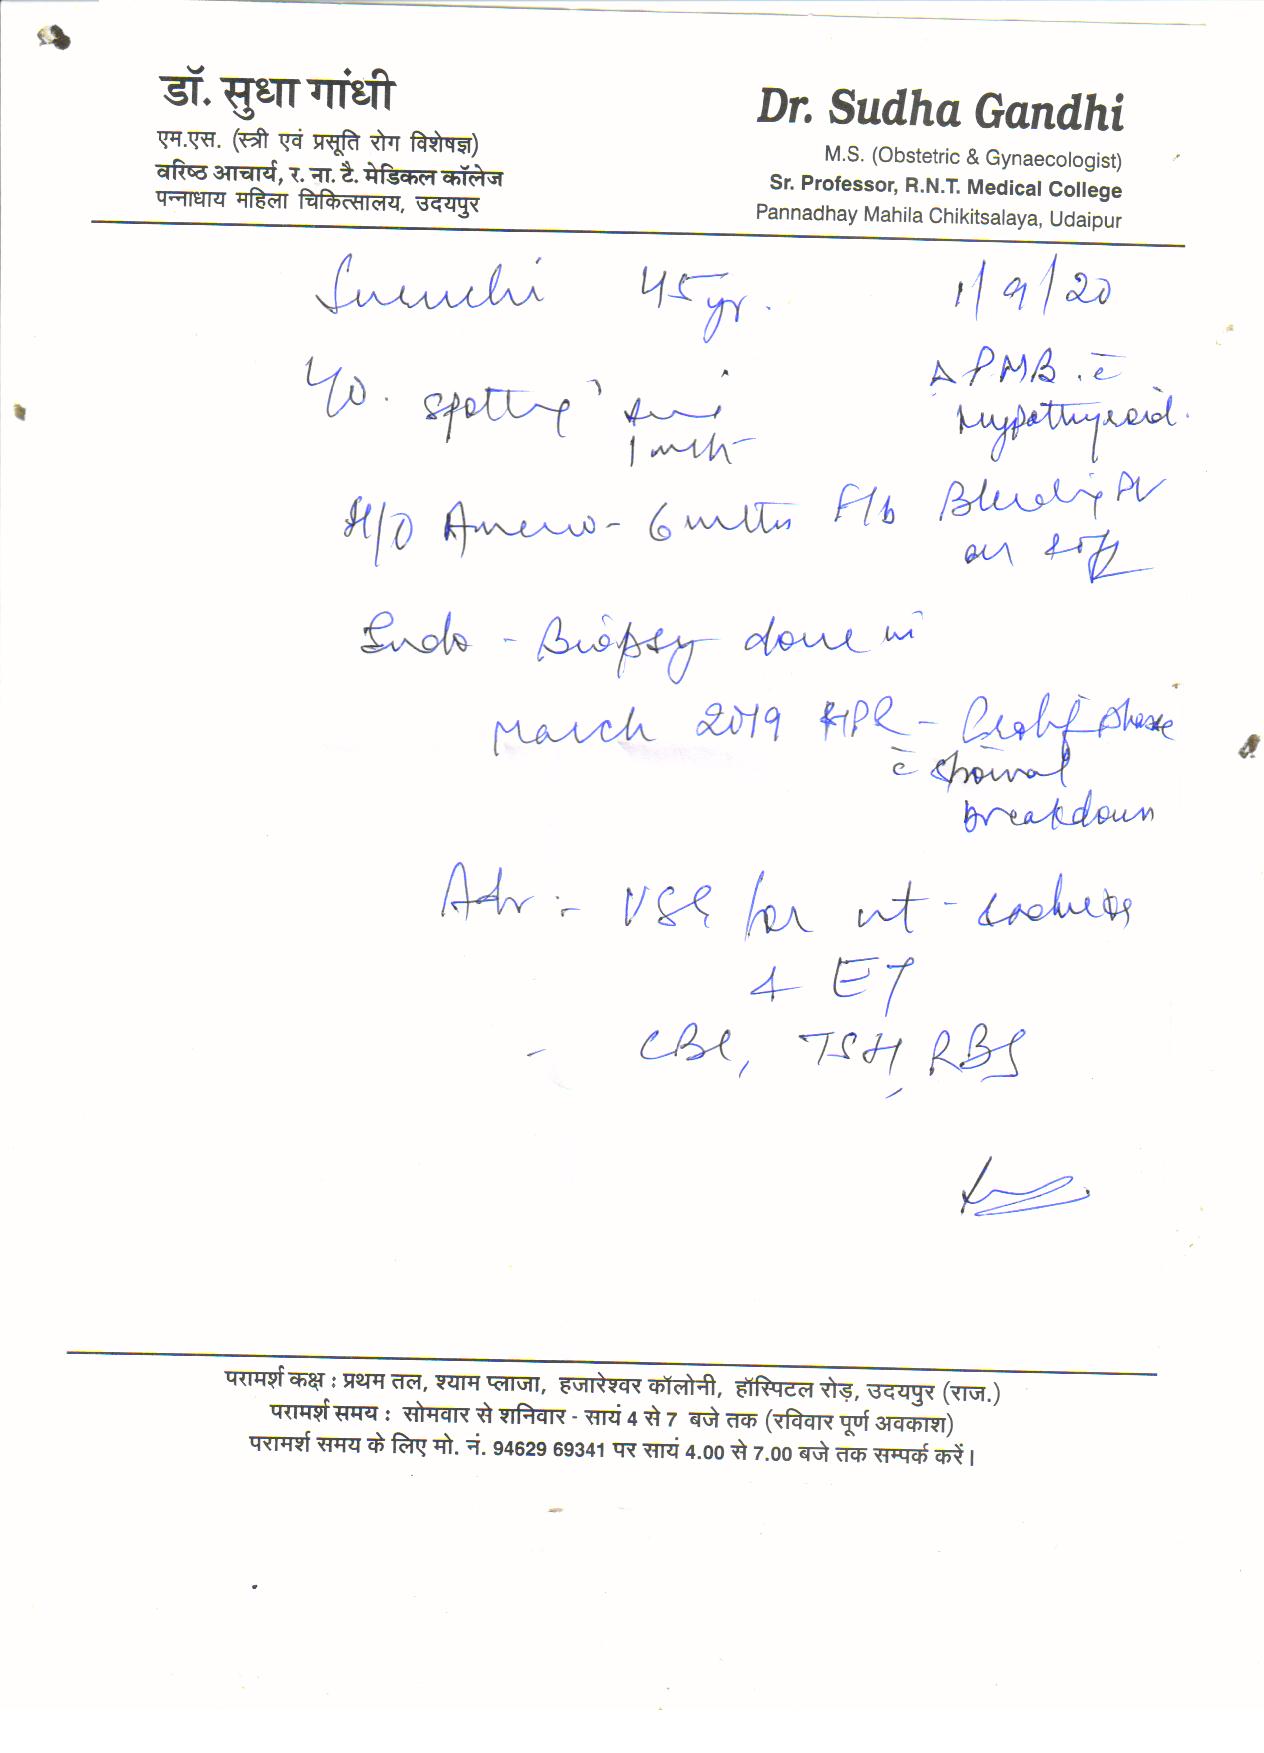 डॉ. सुधा गांधी
एम.एस. (स्त्री एवं प्रसूति रोग विशेषज्ञ)
वरिष्ठ आचार्य, र. ना. टै. मेडिकल कॉलेज
पन्नाधाय महिला चिकित्सालय, उदयपुर
Dr. Sudha Gandhi
M.S. (Obstetric & Gynaecologist)
Sr. Professor, R.N.T. Medical College
Pannadhay Mahila Chikitsalaya, Udaipur
45 yr. 1/9/20
Δ PMB. c̄
Hypothyroid.
spotting
1 mth
H/O Ameno - 6 mths F/b Bleeding PV
on & off
Endo - Biopsy done in
March 2019 HPR - Prolif phase
c̄ stromal
breakdown
Adv :- USG for ut -
& ET
- CBC, TSH, RBS
परामर्श कक्ष : प्रथम तल, श्याम प्लाजा, हजारेश्वर कॉलोनी, हॉस्पिटल रोड़, उदयपुर (राज.)
परामर्श समय : सोमवार से शनिवार - सायं 4 से 7 बजे तक (रविवार पूर्ण अवकाश)
परामर्श समय के लिए मो. नं. 94629 69341 पर सायं 4.00 से 7.00 बजे तक सम्पर्क करें।